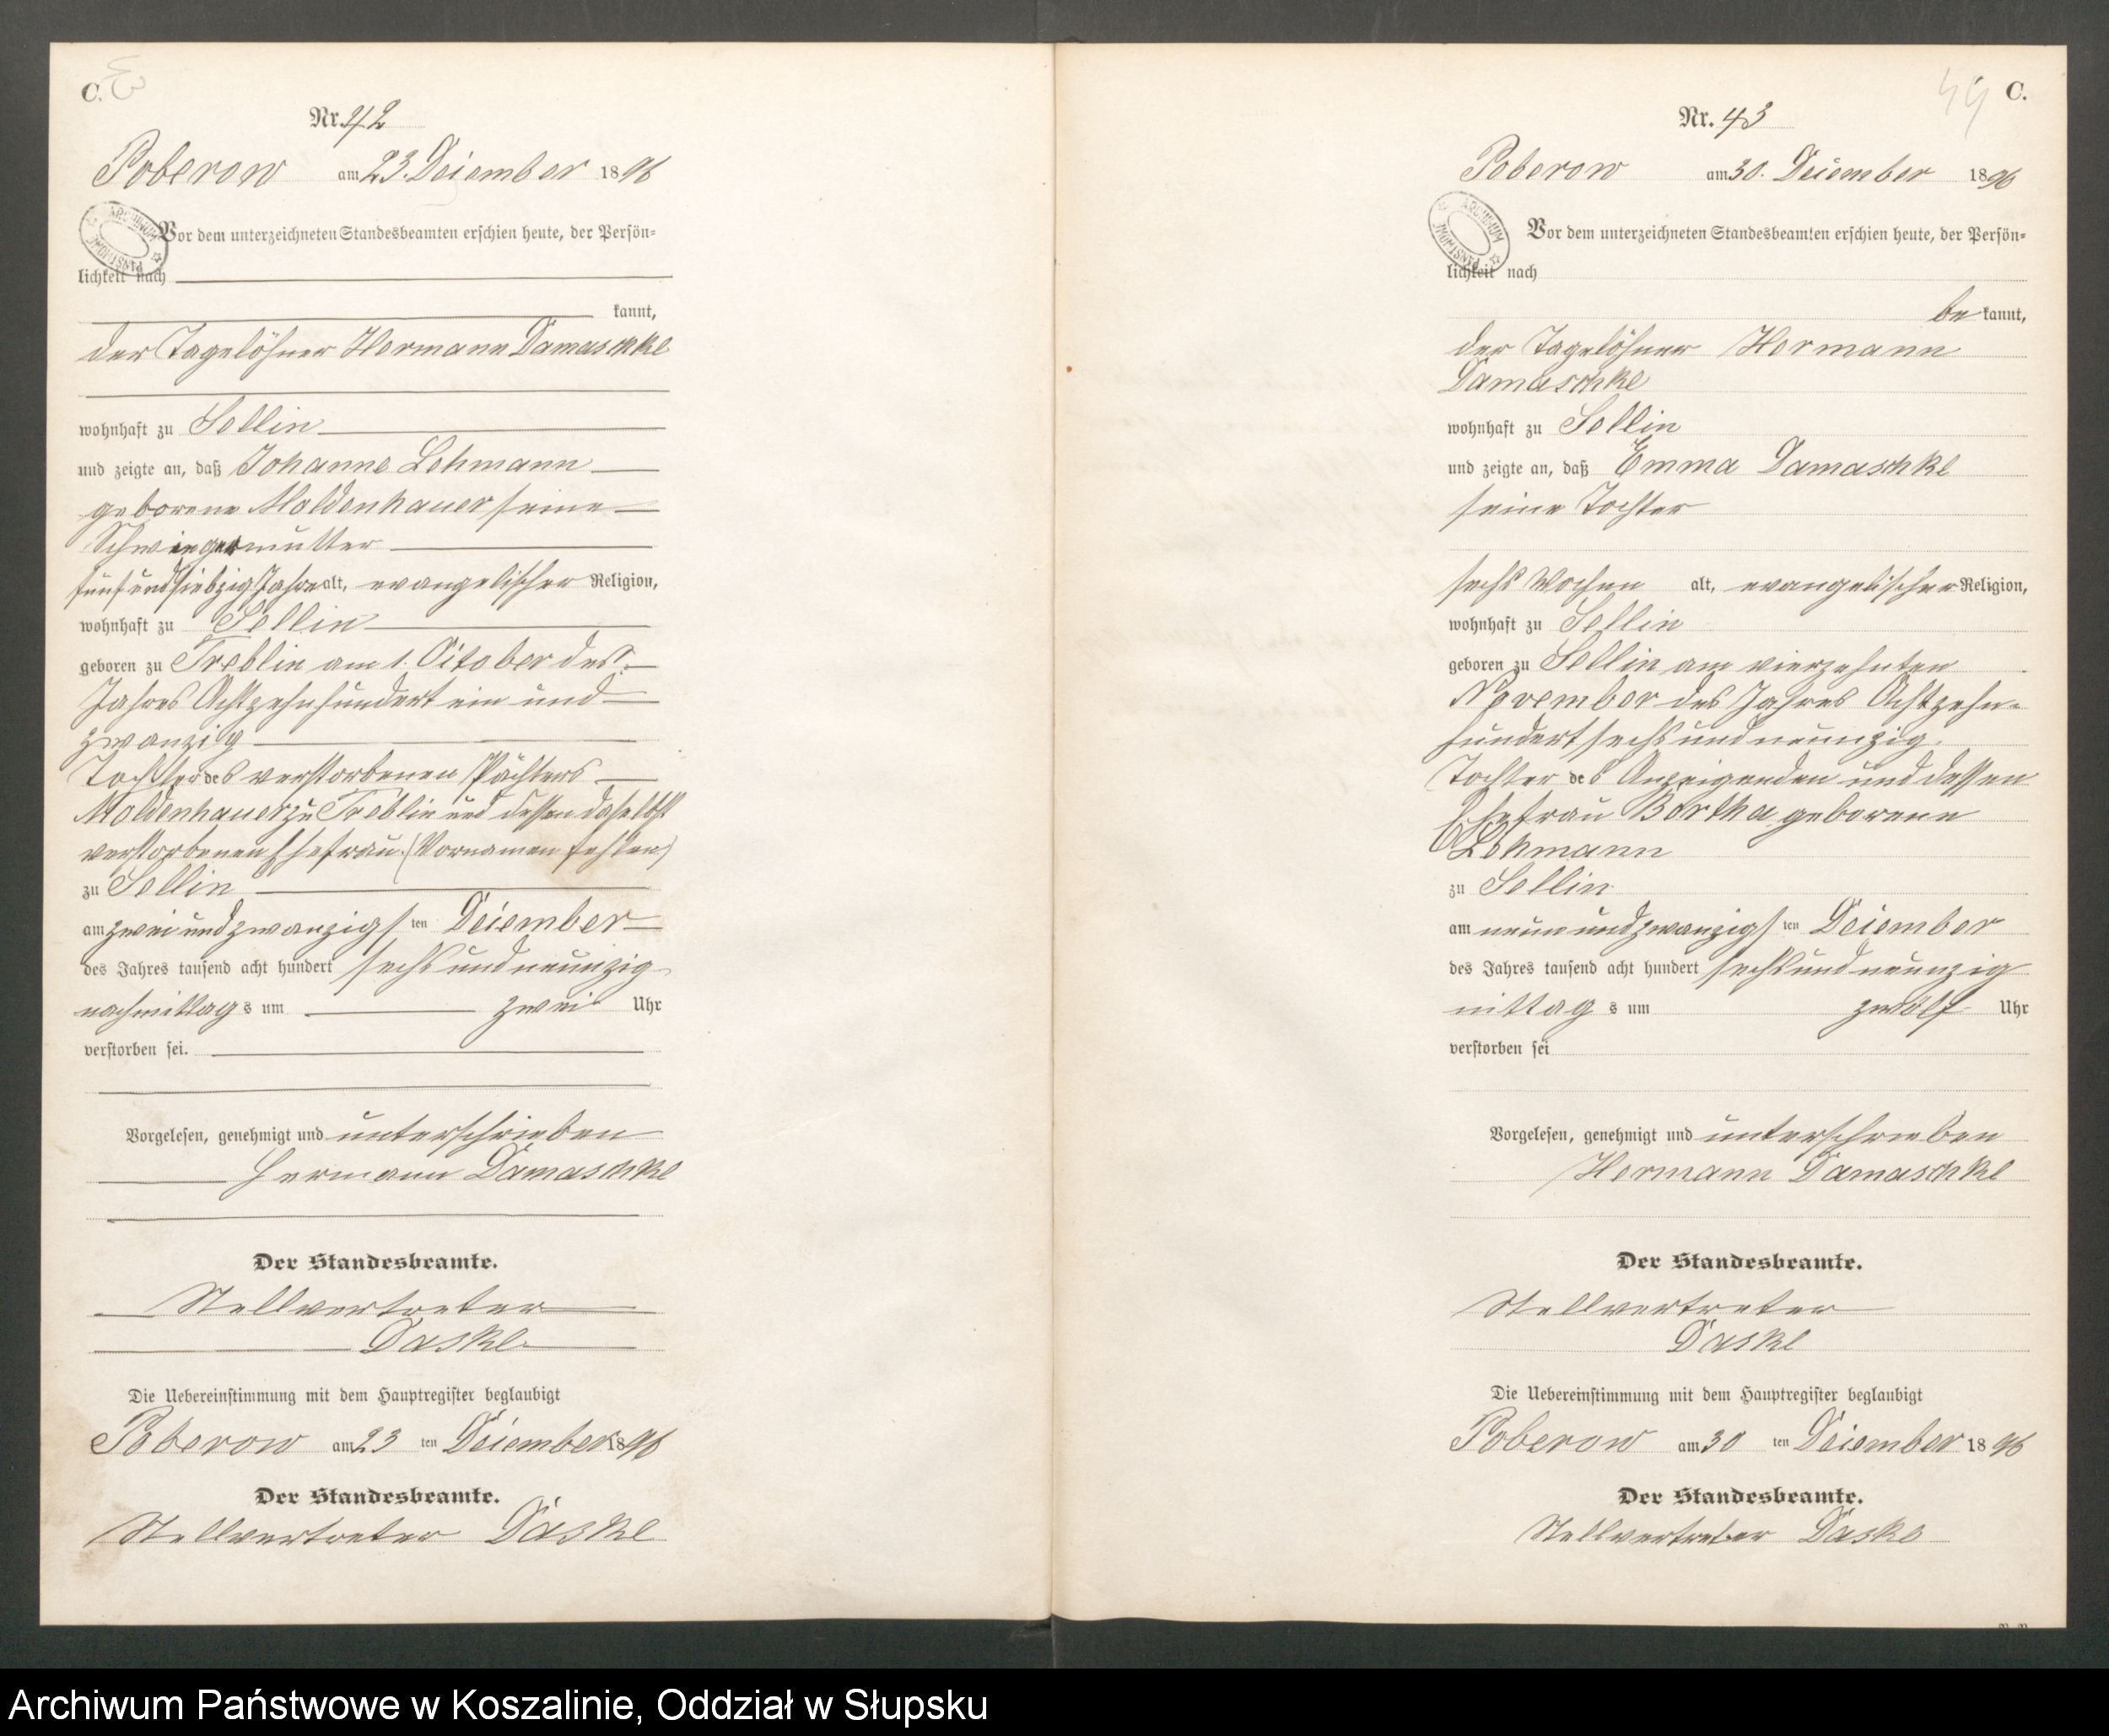 C.
Nr. 42
Poberow am 23. Dezember 1896
ARCHIWUM
PAŃSTWOWE
Vor dem unterzeichneten Standesbeamten erschien heute, der Persön-
lichkeit nach
kannt,
der Tagelöhner Hermann Damaschke
wohnhaft zu Sellin
und zeigte an, daß Johanne Lehmann
geborene Moldenhauer seine
Schwiegermutter
fünfundsiebzig Jahre alt, evangelischer Religion,
wohnhaft zu Sellin
geboren zu Treblin am 1. October des
Jahres Achtzehnhundert ein und
zwanzig
Tochter des verstorbenen Pächters
Moldenhauer zu Treblin und dessen daselbst
verstorbenen Ehefrau. (Vornamen fehlen)
zu Sellin
am zwei und zwanzigsten Dezember
des Jahres tausend acht hundert sechs und neunzig
nachmittags um zwei Uhr
verstorben sei.
Vorgelesen, genehmigt und unterschrieben
Hermann Damaschke
Der Standesbeamte.
Stellvertreter
Daske
Die Uebereinstimmung mit dem Hauptregister beglaubigt
Poberow am 23 ten Dezember 1896
Der Standesbeamte.
Stellvertreter Daske
44 C.
Nr. 43
Poberow am 30. Dezember 1896
ARCHIWUM
PAŃSTWOWE
Vor dem unterzeichneten Standesbeamten erschien heute, der Persön-
lichkeit nach
bekannt,
der Tagelöhner Hermann
Damaschke
wohnhaft zu Sellin
und zeigte an, daß Emma Damaschke
seine Tochter
sechs Wochen alt, evangelischer Religion,
wohnhaft zu Sellin
geboren zu Sellin am vierzehnten
November des Jahres Achtzehn-
hundert sechs und neunzig.
Tochter des Anzeigenden und dessen
Ehefrau Bertha geborene
Lehmann
zu Sellin
am neun und zwanzigsten Dezember
des Jahres tausend acht hundert sechs und neunzig
mittags um zwölf Uhr
verstorben sei
Vorgelesen, genehmigt und unterschrieben
Hermann Damaschke
Der Standesbeamte.
Stellvertreter
Daske
Die Uebereinstimmung mit dem Hauptregister beglaubigt
Poberow am 30 ten Dezember 1896
Der Standesbeamte.
Stellvertreter Daske
Archiwum Państwowe w Koszalinie, Oddział w Słupsku